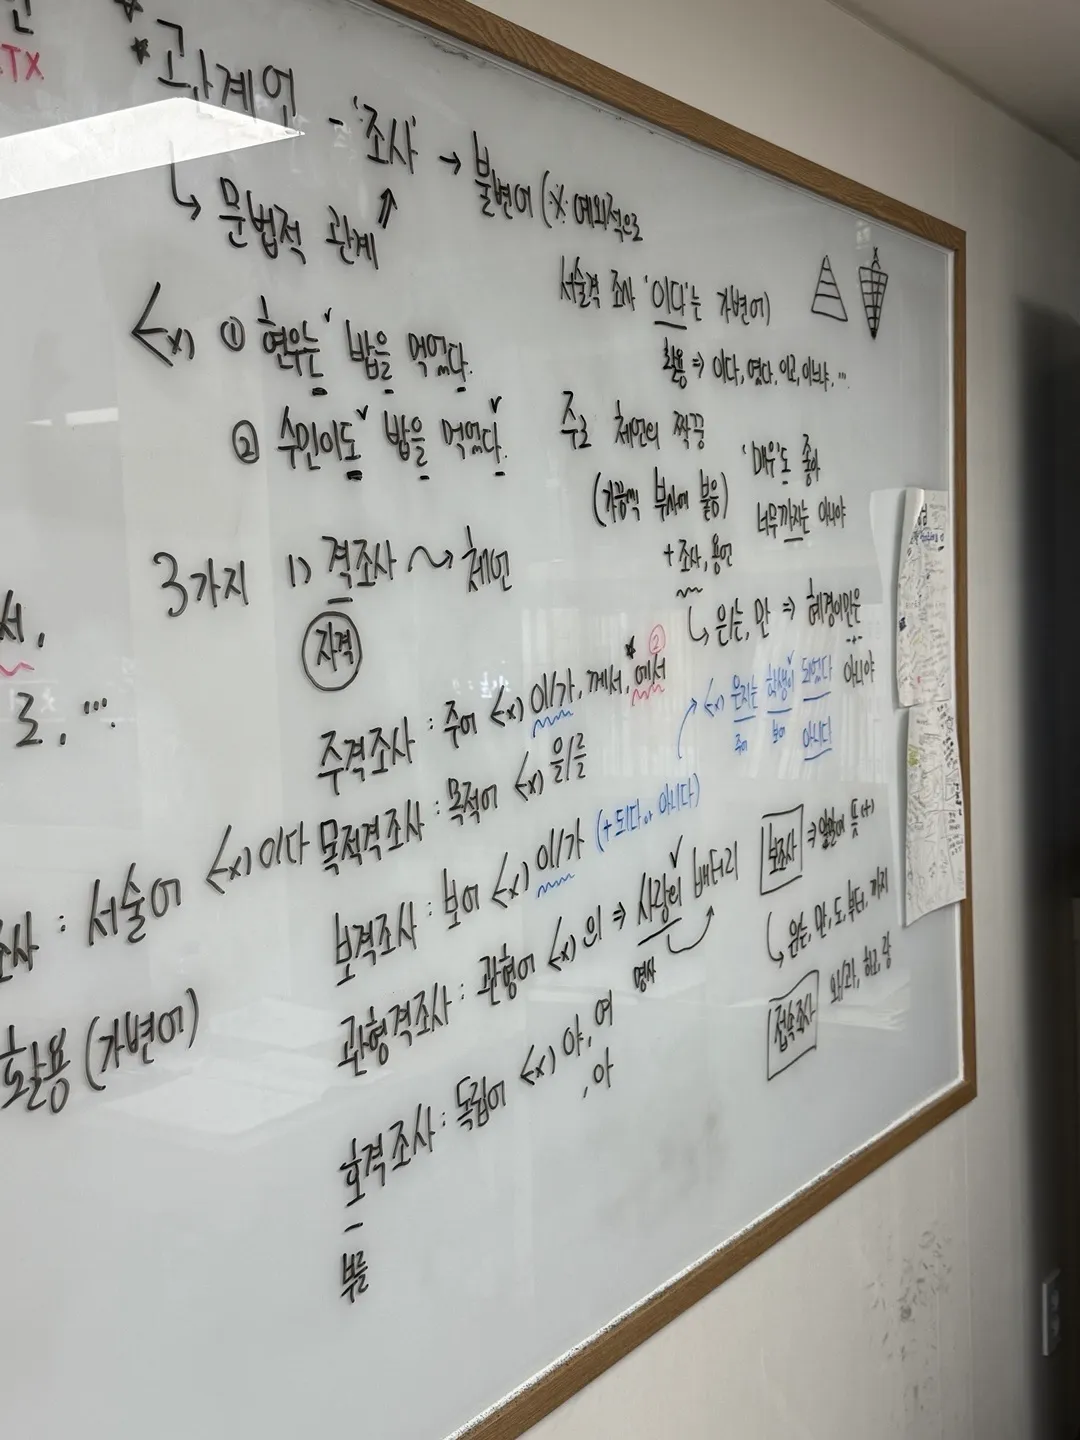 TX
*관계언 - '조사' → 불변어 (※ 예외적으로
서술격 조사 '이다'는 가변어)
↳ 문법적 관계
활용 ⇒ 이다, 였다, 이고, 이느냐, …
Ex) ① 현우는 밥을 먹었다.
② 수민이도 밥을 먹었다.
주로 체언의 짝꿍
(가끔씩 부사에 붙음)
+ 조사, 용언
'매우'도 좋아
너무까지는 아니야
↳ 은/는, 만 ⇒ 혜경이만은
아니야
3가지 1) 격조사 ~> 체언
자격
서,
로, …
주격조사 : 주어 Ex) 이/가, 께서, *에서 ②
목적격조사 : 목적어 Ex) 을/를
조사 : 서술어 Ex) 이다
활용 (가변어)
보격조사 : 보어 Ex) 이/가 (+ 되다 or 아니다)
Ex) 은지는 학생이 되었다
주어 보어 아니다
관형격조사 : 관형어 Ex) 의 ⇒ 사랑의 배터리
명사
호격조사 : 독립어 Ex) 야, 여
, 아
부를
보조사 ⇒ 뜻(+)
↳ 은/는, 만, 도, 부터, 까지
접속조사 와/과, 하고, 랑